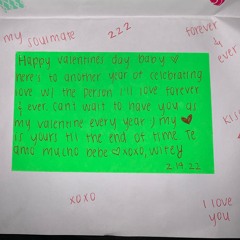 my soulmate
222
forever
&
ever
Happy valentines day baby ♥
here's to another year of celebrating
love w/ the person i'll love forever
& ever. can't wait to have you as
my valentine every year, my ♥
is yours till the end of time. Te
amo mucho bebe ♡ xoxo, wifey
2.14.22
xoxo
I love
you